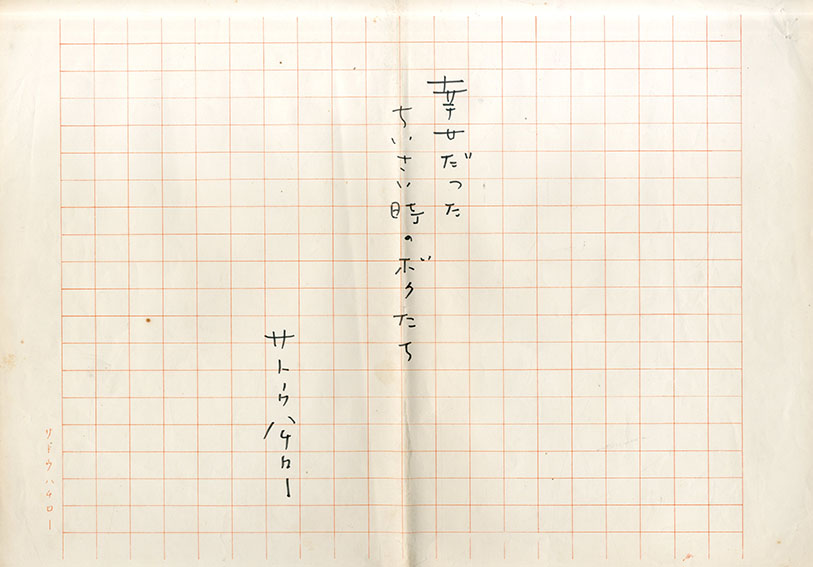 幸せだった
ちいさい時のボクたち
サトウハチロー
サトウハチロー